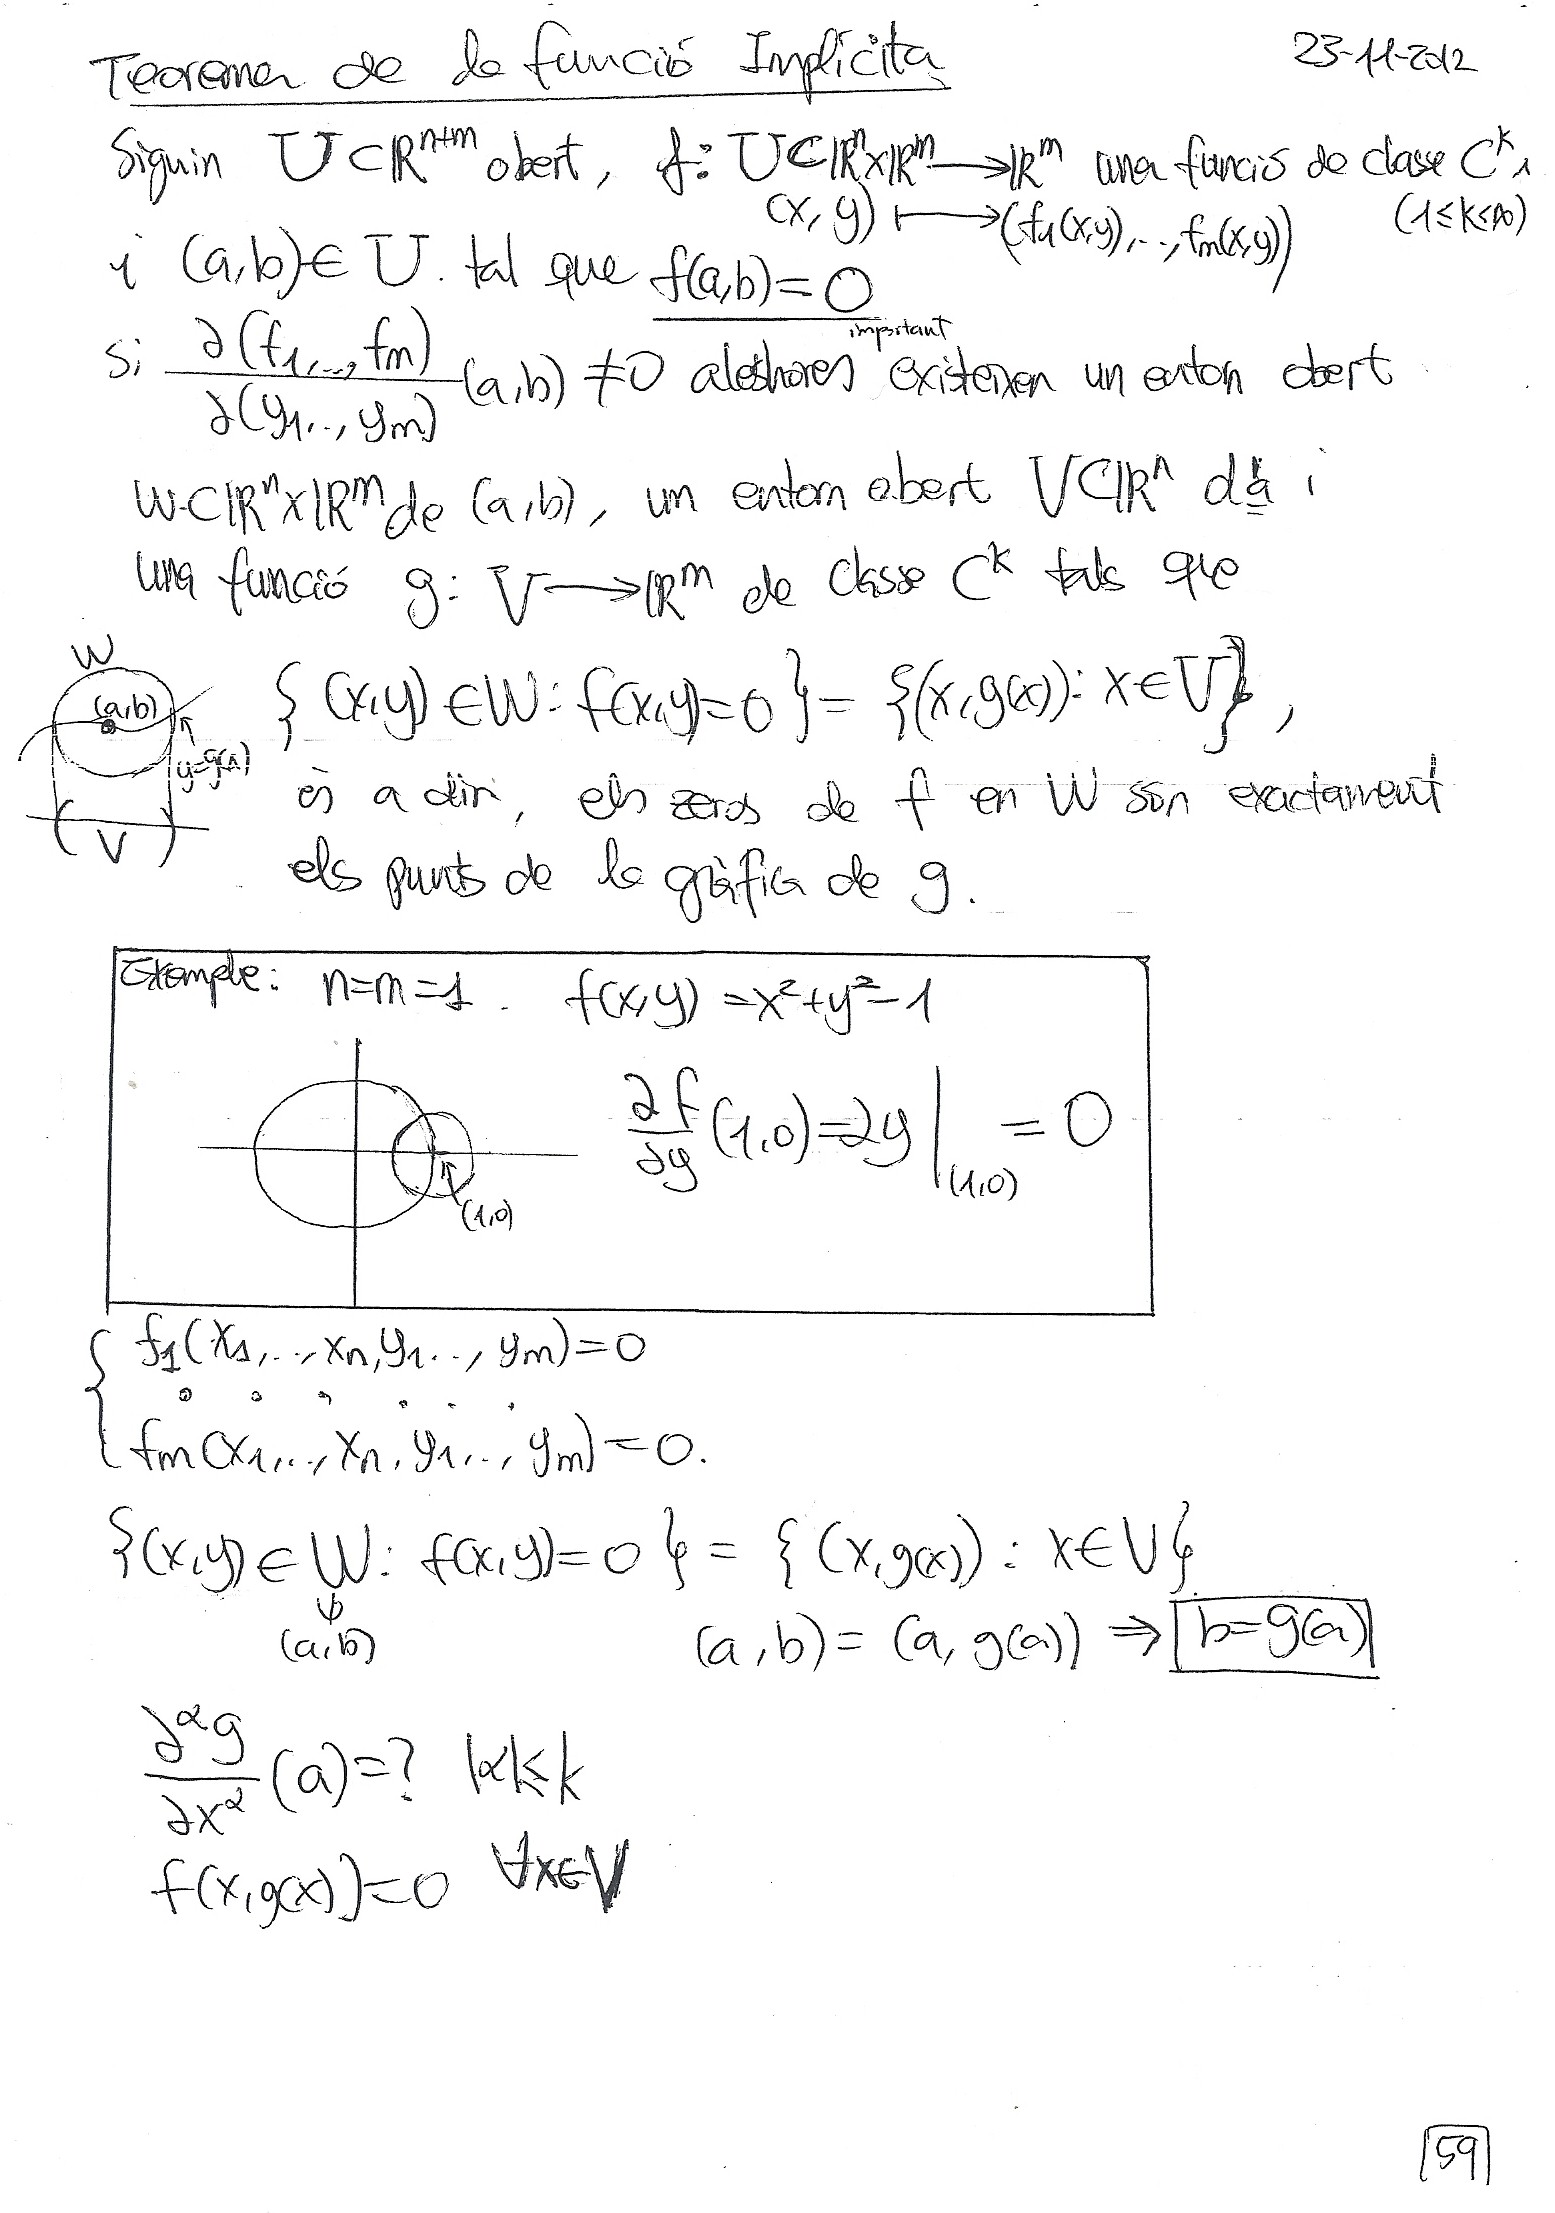 Teorema de la funció Implícita 23-11-2012
Siguin U⊂ℝⁿ⁺ᵐ obert, f: U⊂ℝⁿxℝᵐ→ℝᵐ una funció de classe Cᵏ,
(x, y) ↦ (f₁(x,y),..., fm(x,y)) (1≤k≤∞)
i (a,b)∈ U. tal que f(a,b)=0
important
Si ∂(f₁,..., fm)/∂(y₁..., ym) (a,b) ≠0 aleshores existeixen un entorn obert
W⊂ℝⁿxℝᵐ de (a,b), un entorn obert V⊂ℝⁿ d'a i
una funció g: V→ℝᵐ de classe Cᵏ tals que
W
(a,b)
y=g(x)
V
{(x,y)∈W: f(x,y)=0}={(x,g(x)): x∈V},
és a dir, els zeros de f en W són exactament
els punts de la gràfica de g.
Exemple: n=m=1. f(x,y)=x²+y²-1
∂f/∂y (1,0)=2y|(1,0) =0
(1,0)
{ f₁(x₁,..., xn,y₁..., ym)=0
. . . . . .
fm(x₁,..., xn, y₁..., ym)=0.
{(x,y)∈W: f(x,y)=0}={(x,g(x)): x∈V}
ψ
(a,b) (a,b)=(a,g(a))⇒ b=g(a)
∂ᵅg/∂xᵅ (a)=? |α|≤k
f(x,g(x))=0 ∀x∈V
59